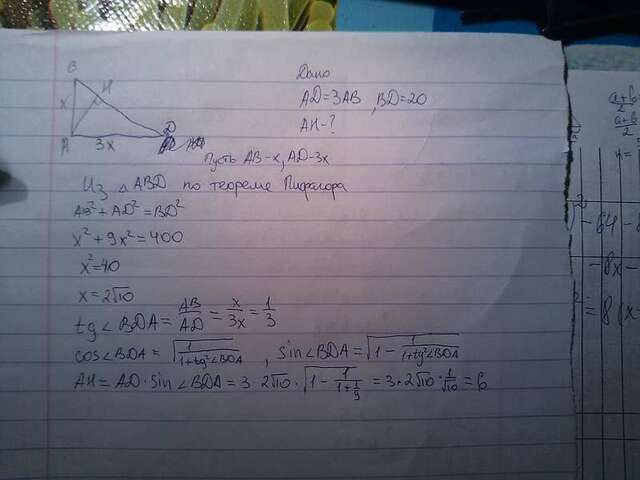 B
H
x
A
3x
D
Дано
AD=3AB, BD=20
AH-?
Пусть AB-x, AD-3x
Из △ABD по теореме Пифагора
AB²+AD²=BD²
x²+9x²=400
x²=40
x=2√10
tg∠BDA=AB/AD=x/3x=1/3
cos∠BDA=√(1/(1+tg²∠BDA)), sin∠BDA=√(1-1/(1+tg²∠BDA))
AH=AD·sin∠BDA=3·2√10·√(1-1/(1+1/9))=3·2√10·1/√10=6
a+b/2
a+b/2
-64-
-8x-
=8(x-